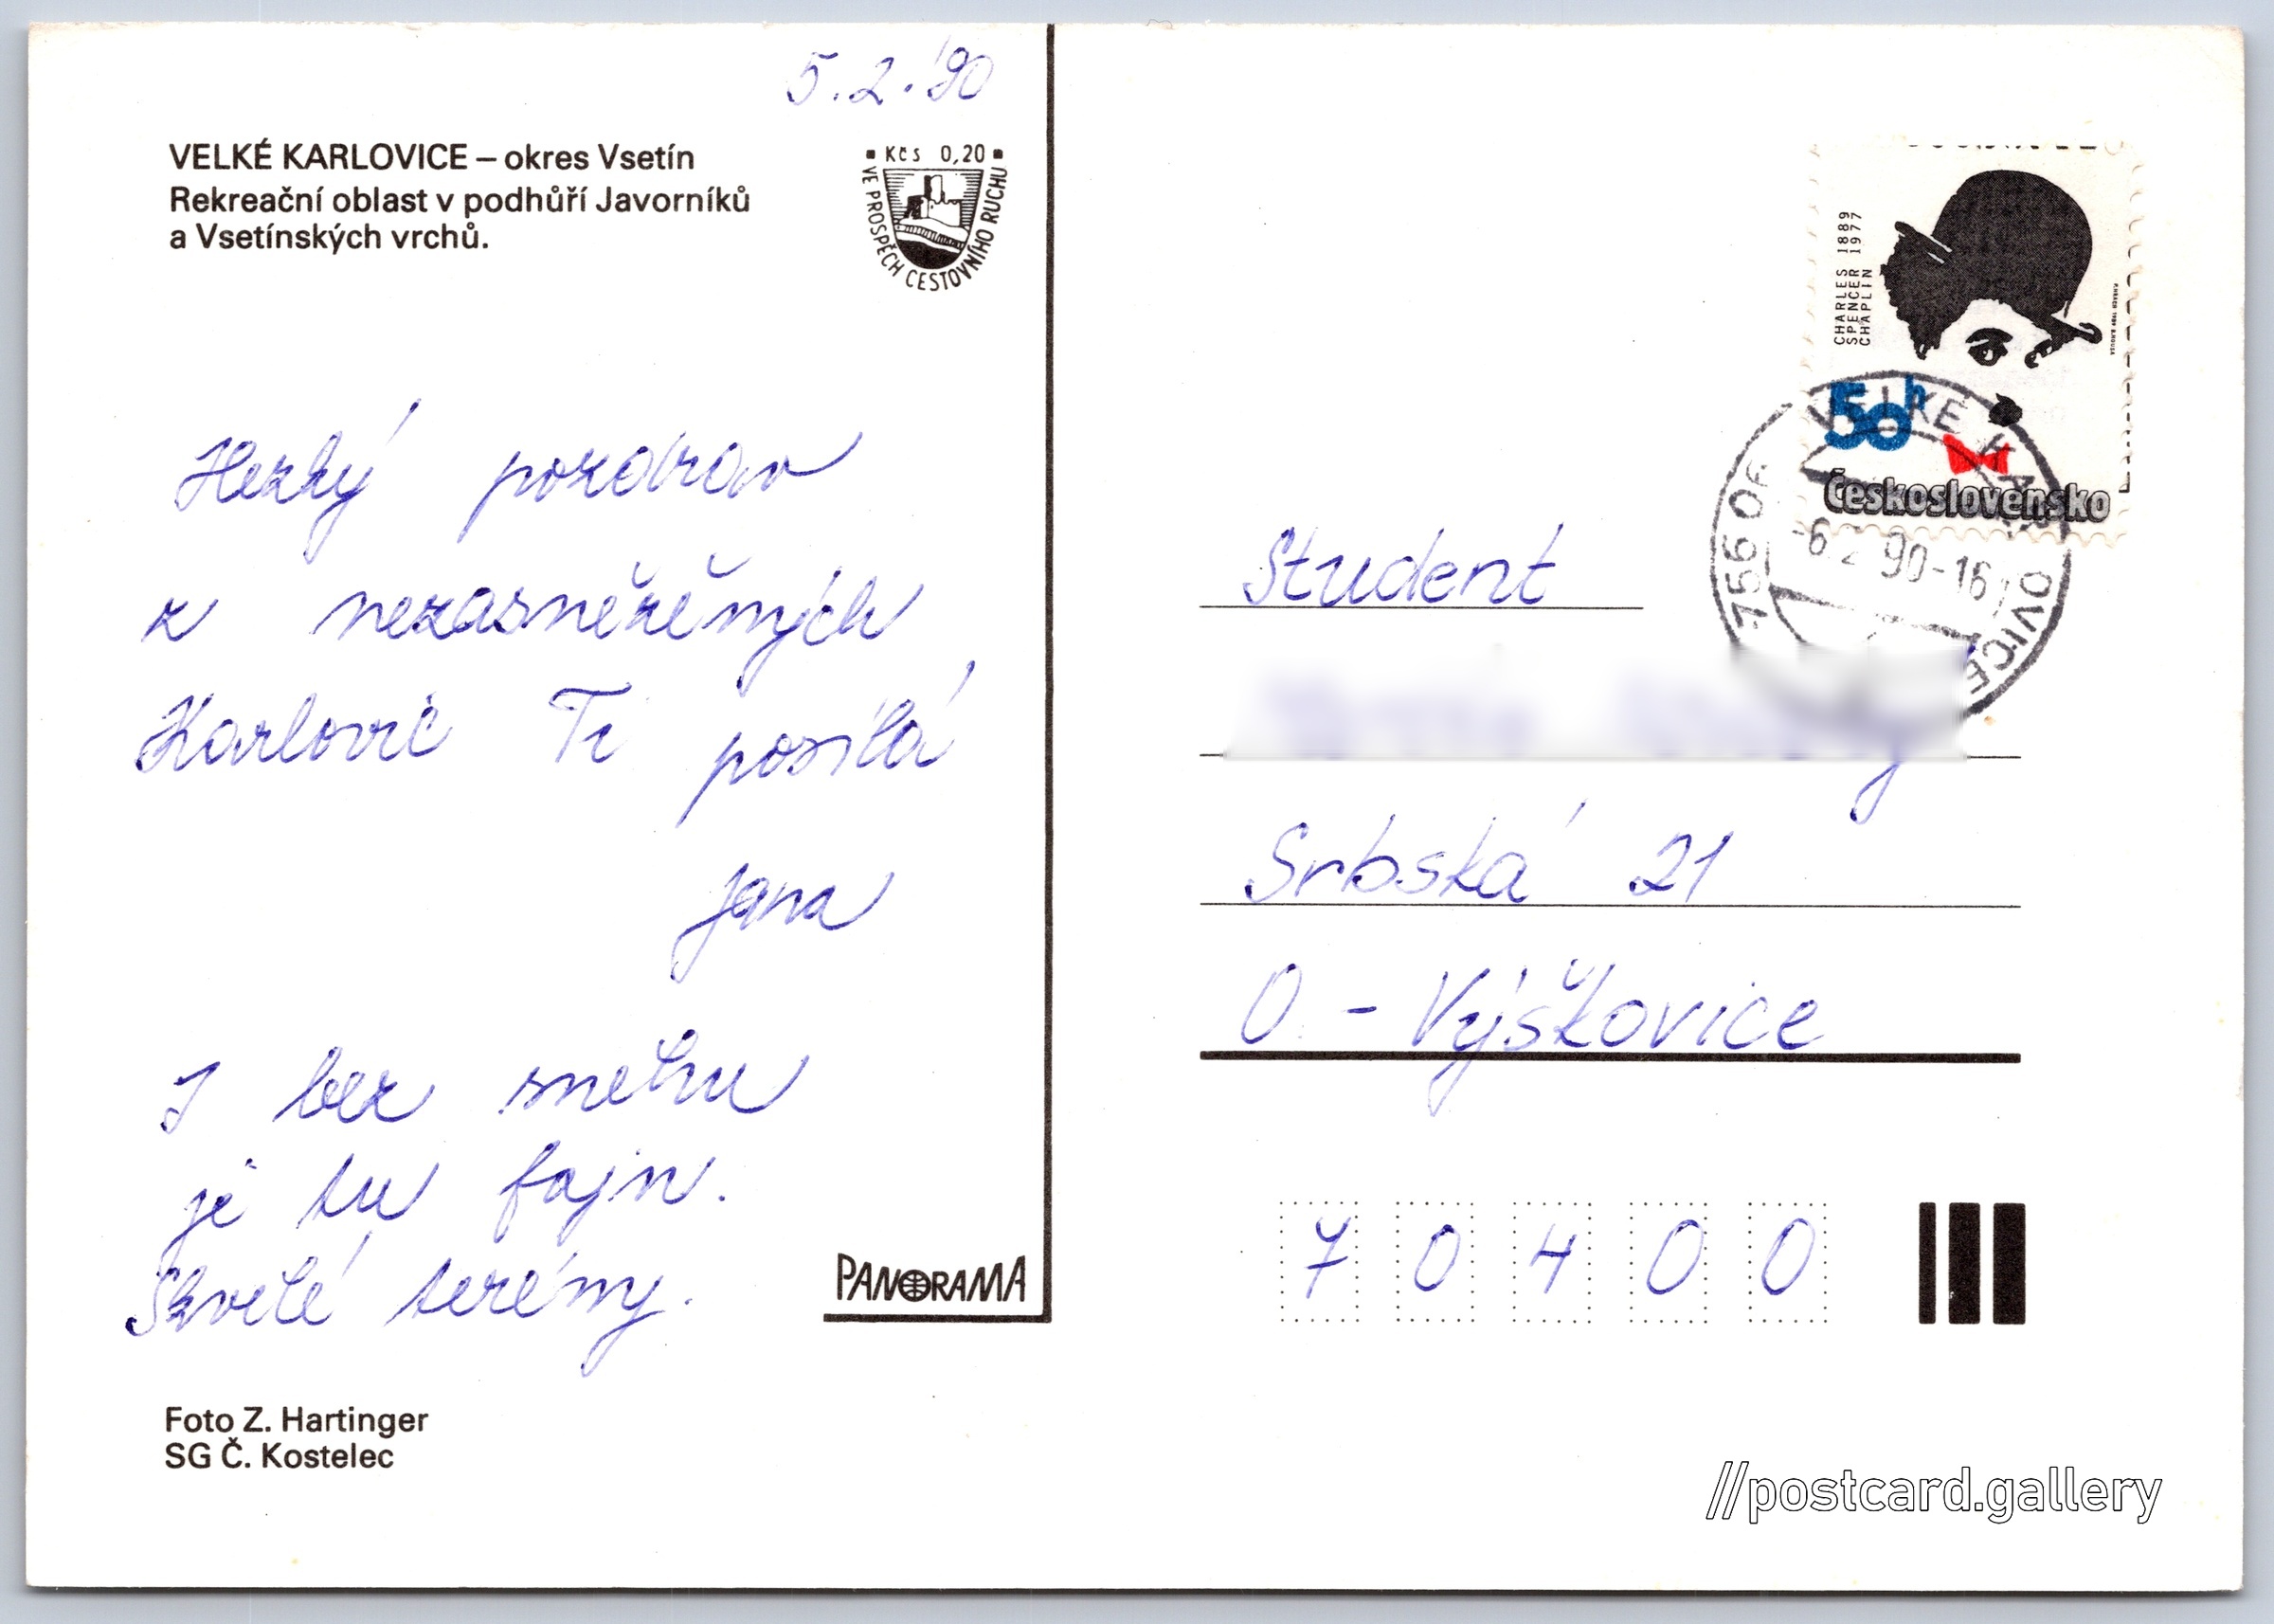 5.2.'90
VELKÉ KARLOVICE – okres Vsetín
Rekreační oblast v podhůří Javorníků
a Vsetínských vrchů.
Kčs 0,20
VE PROSPĚCH CESTOVNÍHO RUCHU
Hezký pozdrav
z nezasněžěných
Karlovic Ti posílá
Jana
I bez sněhu
je tu fajn.
Skvělé terémy.
PANORAMA
Foto Z. Hartinger
SG Č. Kostelec
CHARLES 1889
SPENCER 1977
CHAPLIN
50h
Československo
756 06 VELKÉ KARLOVICE
-6.2.90-16
Student
Srbská 21
O - Výškovice
70400
//postcard.gallery